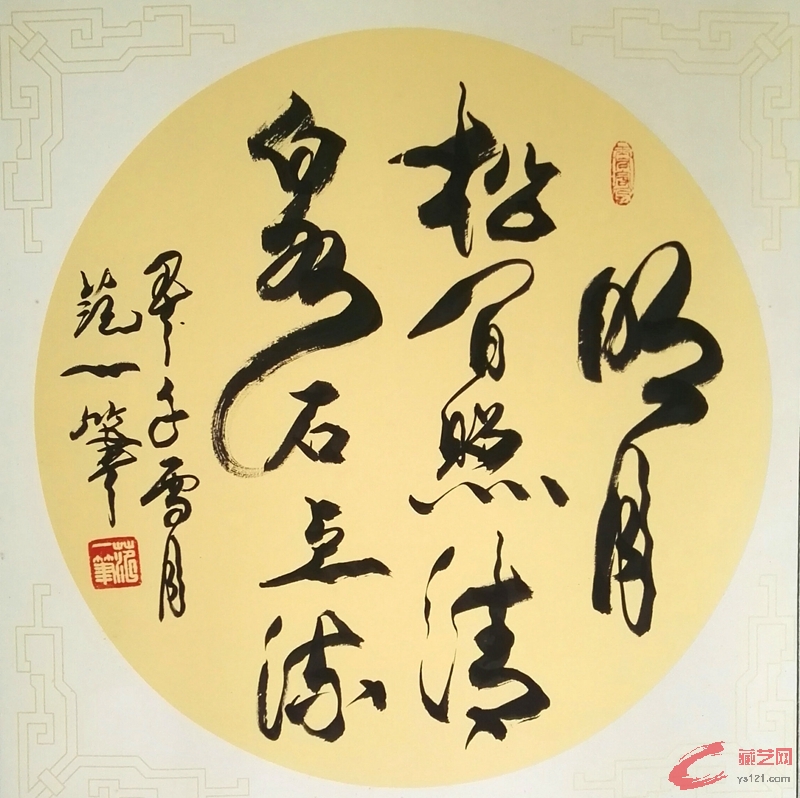 明月
松間照清
泉石上流
子雪月
范一筆
范一筆
藏艺网
ys121.com